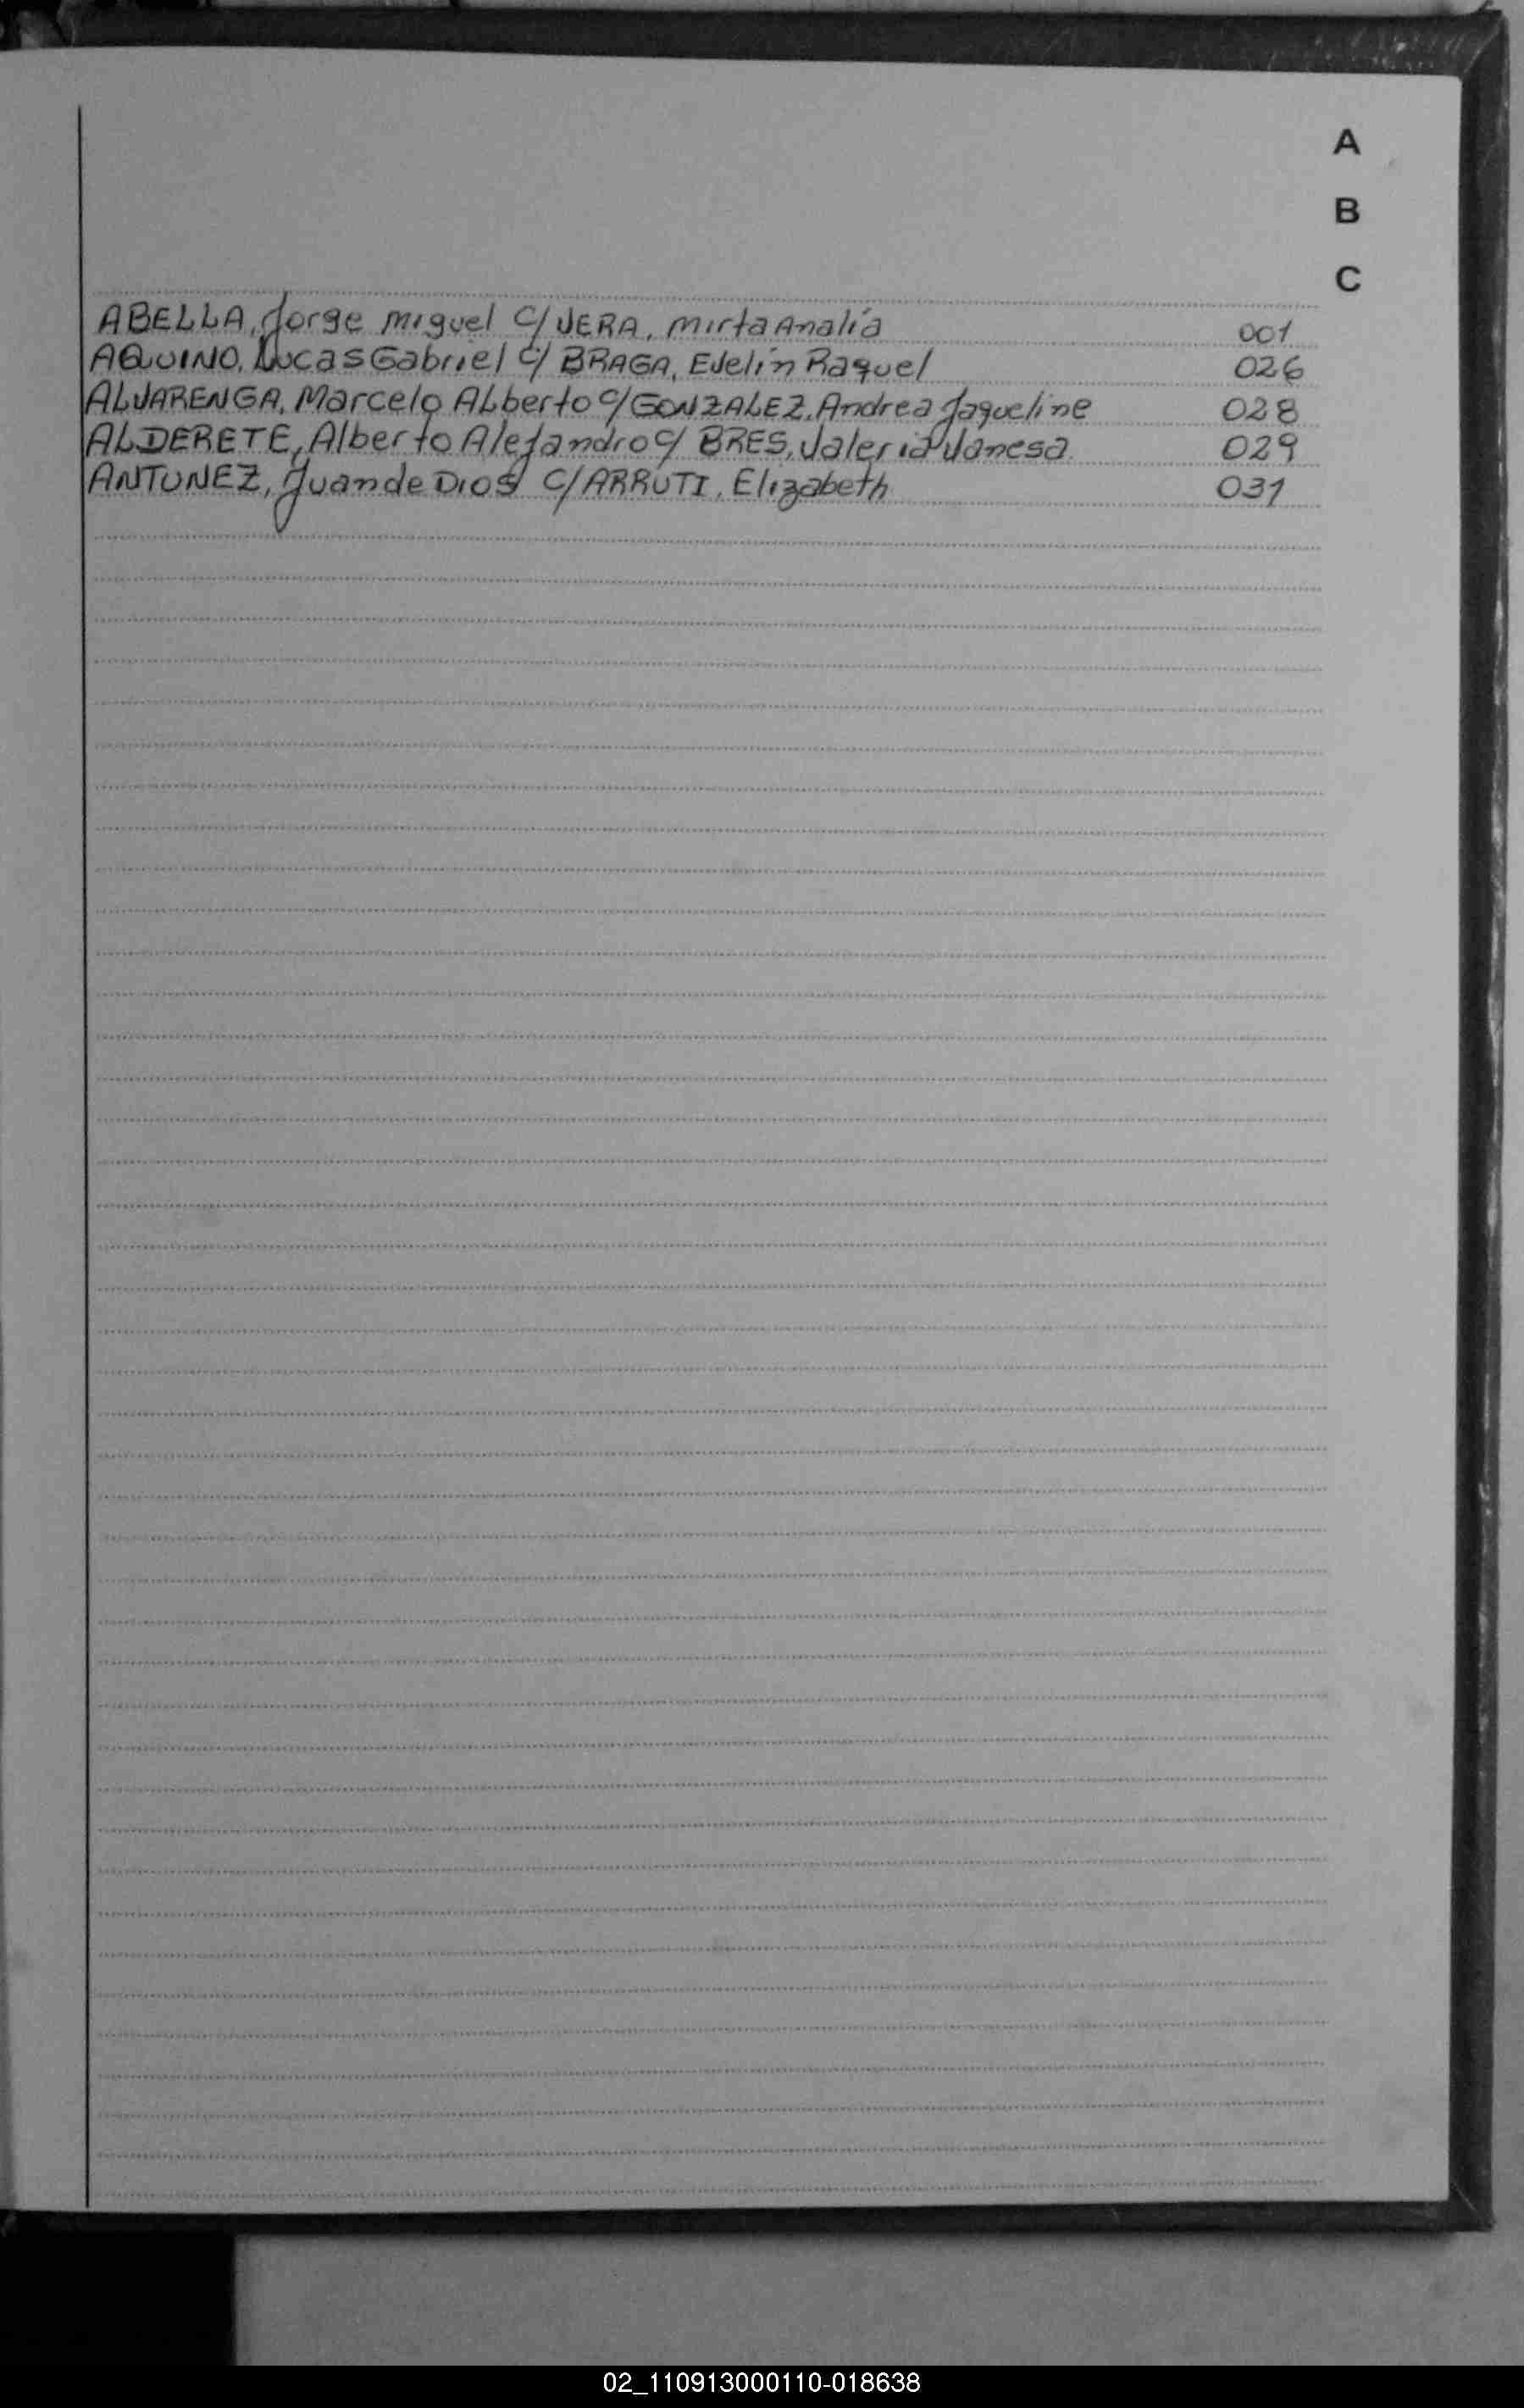 A
B
C
ABELLA, Jorge Miguel C/ VERA, Mirta Analía 001
AQUINO, Lucas Gabriel C/ BRAGA, Evelín Raquel 026
ALVARENGA, Marcelo ALberto C/ GONZALEZ, Andrea Jaqueline 028
ALDERETE, Alberto Alejandro C/ BRES, Valeria Vanesa 029
ANTUNEZ, Juan de Dios C/ ARRUTI, Elizabeth 031
02_110913000110-018638